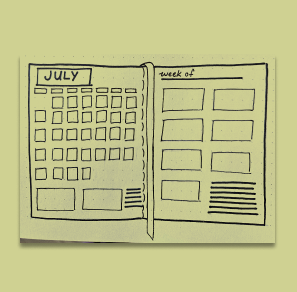 JULY
week of